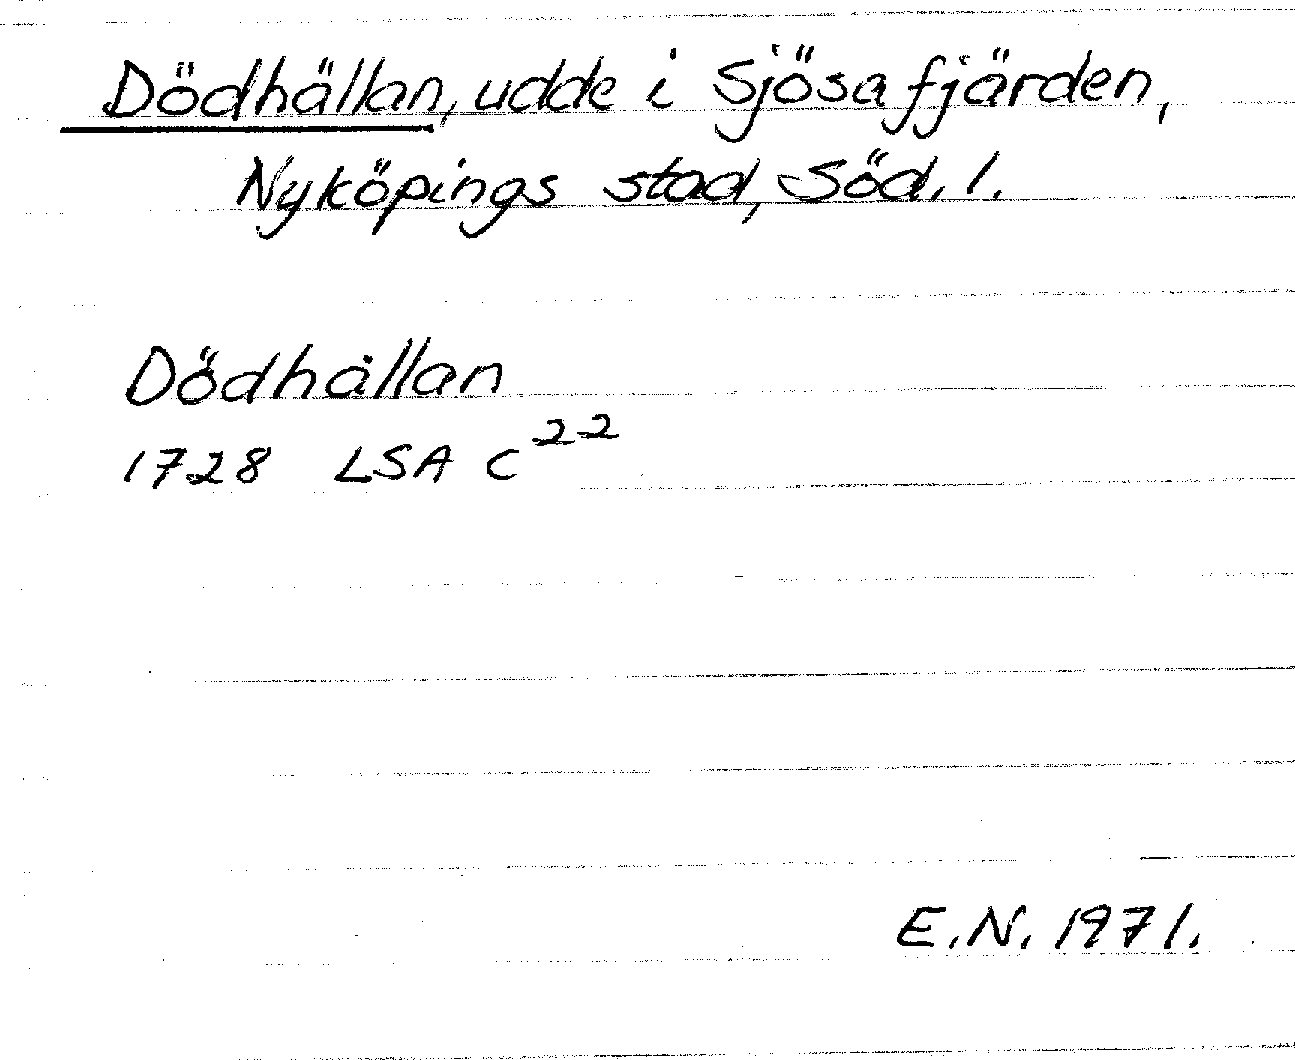 Dödhällan, udde i Sjösafjärden,
Nyköpings stad, Söd. l.
Dödhällan
1728 LSA C²²
E.N. 1971.